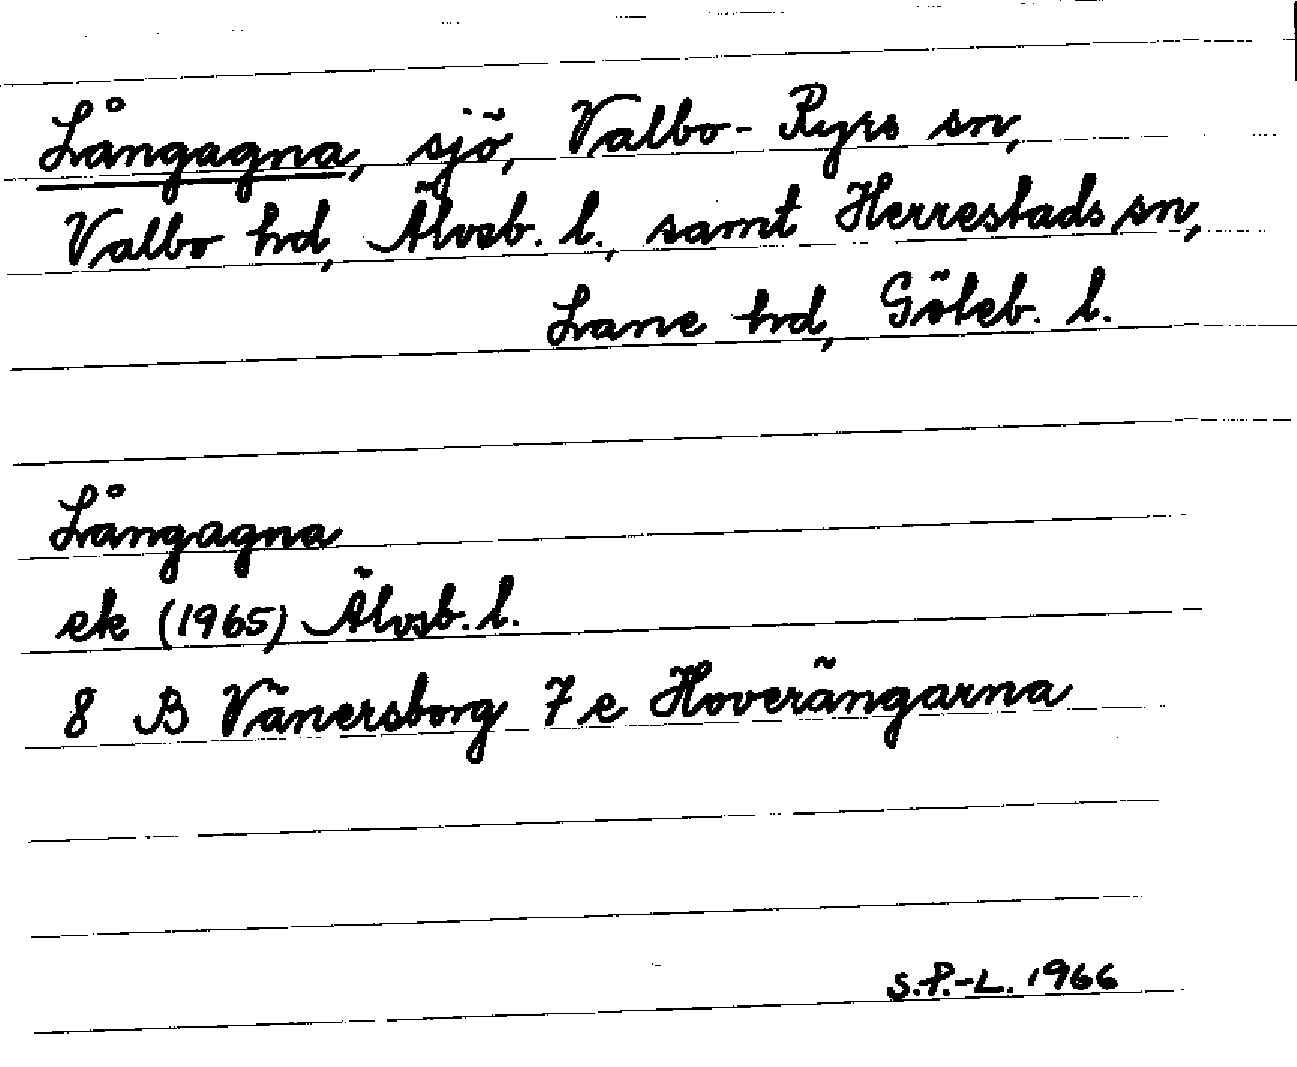 Långagna, sjö, Valbo-Ryrs sn,
Valbo hd, Älvsb. l., samt Herrestads sn,
Lane hd, Göteb. l.
Långagna
ek (1965) Älvsb. l.
8 B Vänersborg 7 e Hoverängarna
S.P.-L. 1966